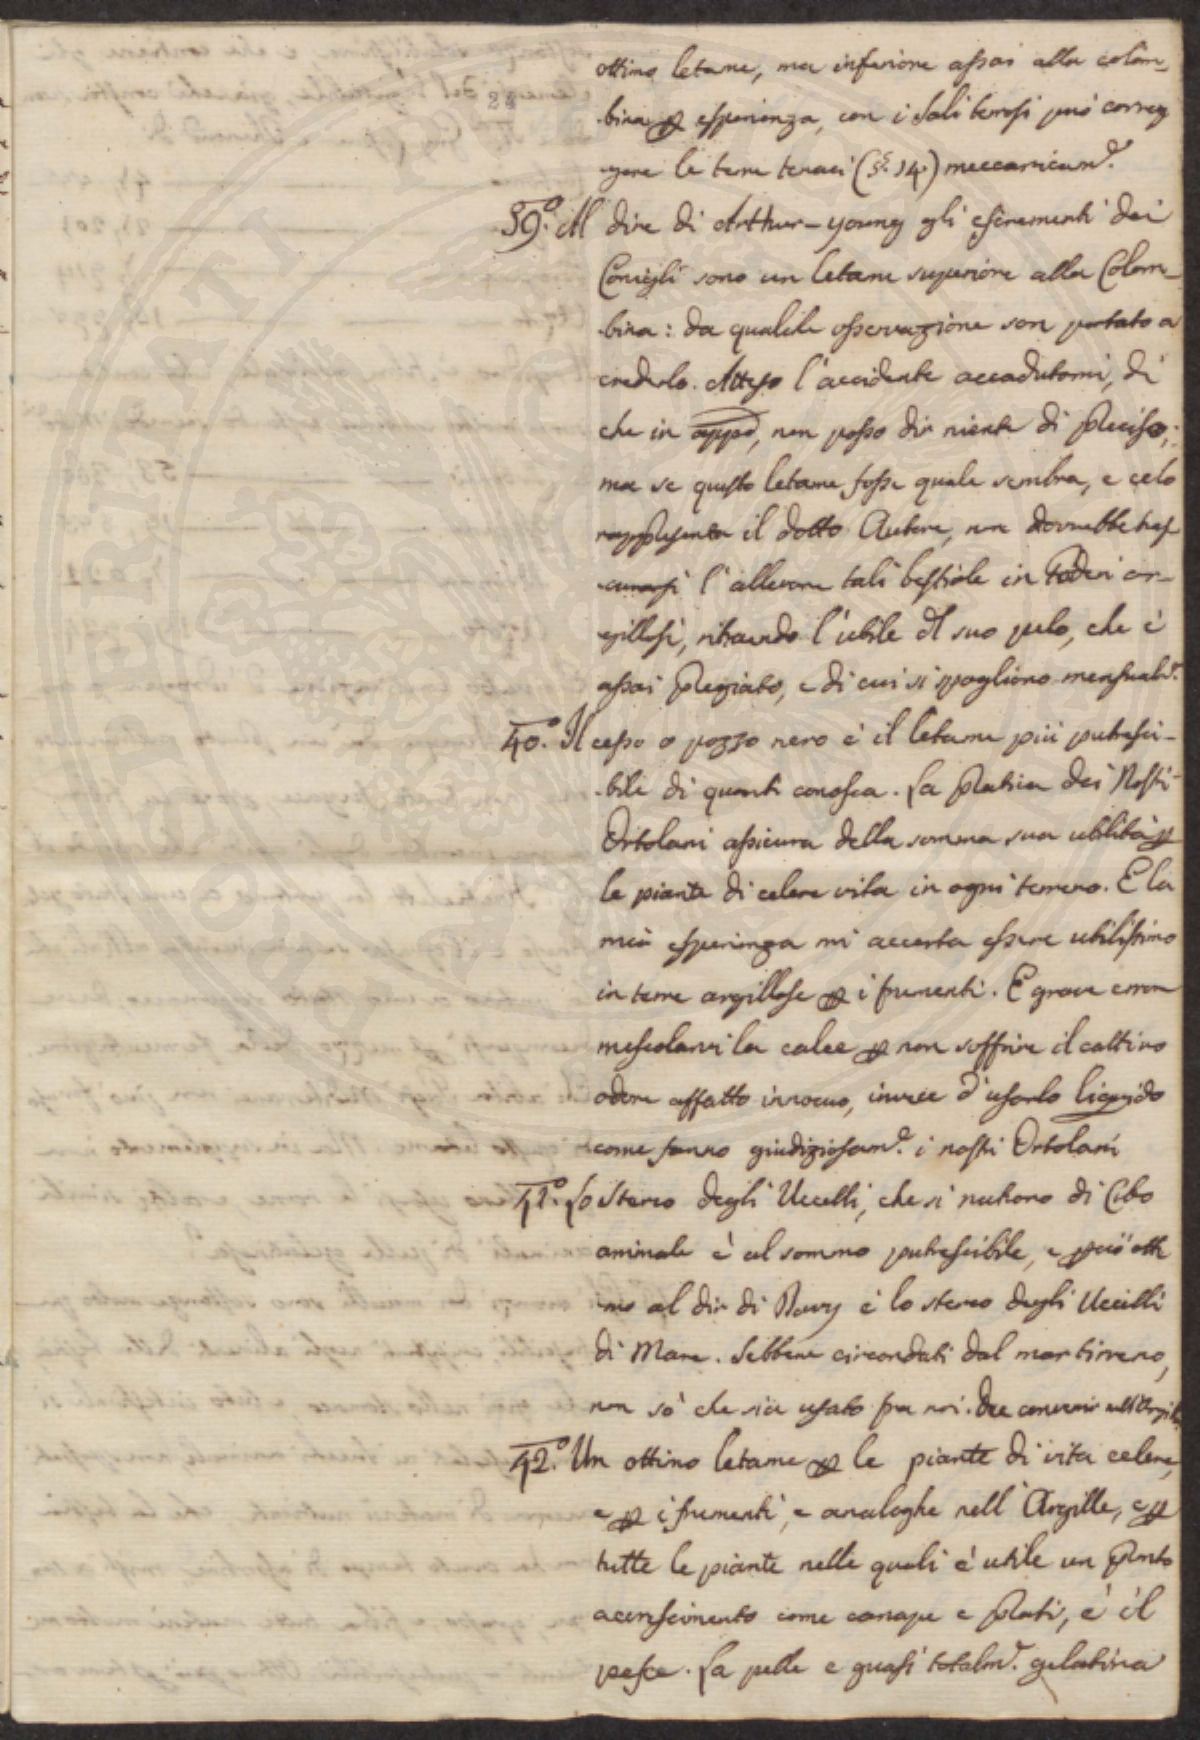 ottimo letame, ma inferiore assai alla colom-
bina p esperienza, con i Sali terrosi può correg
gere le terre tenaci (§. 14.) meccanicam.e
24
39.o Al dire di Arthur-young gli escrementi dei
Conigli sono un letame superiore alla Colom-
bina: da qualche osservazione son portato a
crederlo. Atteso l'accidente accadutomi, di
che in appo, non posso dir niente di preciso;
ma se questo letame fosse quale sembra, e celo
rappresenta il dotto Autore, non dovrebbe tras
curarsi l'allevare tali bestiole in Poderi ar-
gillosi, ritraendo l'utile del suo pelo, che è
assai pregiato, e di cui si spogliono mensualm.e
40.o Il cesso o pozzo nero è il letame più putresci-
bile di quanti conosca. La pratica dei Nostri
Ortolani assicura della somma sua utilità p
le piante di celere vita in ogni terreno. E la
mia esperienza mi accerta essere utilissimo
in terre argillose p i frumenti. E grave errore
mescolarvi la calce p non soffrire il cattivo
odore affatto innocuo, invece d'usarlo liquido
come fanno giudiziosam.e i nostri Ortolani
41.o Lo sterco degli Uccelli, che si nutrono di Cibo
animale è al sommo putrescibile, e perciò otti
mo al dir di Davy è lo sterco degli Uccelli
di Mare. Sebbene circondati dal mar tirreno,
non sò che sia usato fra noi. Dee convenir all'Argille
42.o Un ottimo letame p le piante di vita celere,
e p i frumenti, e analoghe nell'Argille, e p
tutte le piante nelle quali è utile un pronto
accrescimento come canape e prati, è il
pesce. La pelle e quasi totalm.e gelatina